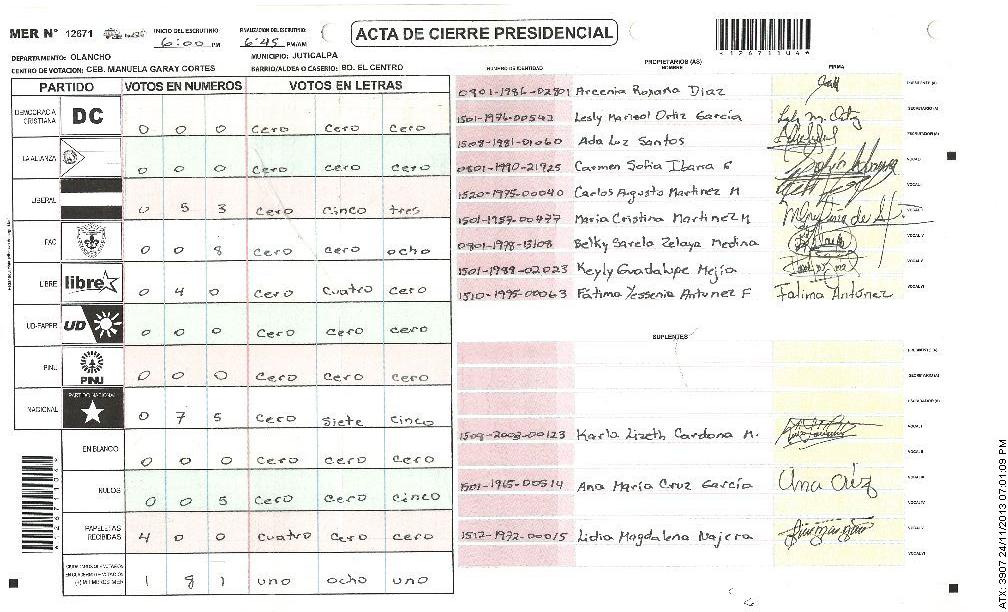 MER N° 12671
INICIO DEL ESCRUTINIO
6:00 PM
FINALIZACION DEL ESCRUTINIO
6:45 PM/AM
ACTA DE CIERRE PRESIDENCIAL
*12671104*
DEPARTAMENTO: OLANCHO
MUNICIPIO: JUTICALPA
CENTRO DE VOTACION: CEB. MANUELA GARAY CORTES
BARRIO/ALDEA O CASERIO: BO. EL CENTRO
PARTIDO VOTOS EN NUMEROS VOTOS EN LETRAS
DEMOCRACIA CRISTIANA DC 0 0 0 cero cero cero
LA ALIANZA 0 0 0 cero cero cero
LIBERAL 0 5 3 cero cinco tres
PAC 0 0 8 cero cero ocho
LIBRE libre 0 4 0 cero cuatro cero
UD-FAPER UD 0 0 0 cero cero cero
PINU PINU 0 0 0 cero cero cero
NACIONAL PARTIDO NACIONAL 0 7 5 cero siete cinco
EN BLANCO 0 0 0 cero cero cero
NULOS 0 0 5 cero cero cinco
PAPELETAS RECIBIDAS 4 0 0 cuatro cero cero
1 8 1 uno ocho uno
NUMERO DE IDENTIDAD
PROPIETARIOS (AS)
NOMBRE
FIRMA
0801-1986-02801 Arcenia Roxana Diaz PRESIDENTE (A)
1501-1976-00542 Lesly Marisol Ortiz García SECRETARIO (A)
1508-1981-01060 Ada Luz Santos ESCRUTADOR (A)
0801-1990-21925 Carmen Sofia Ibarra G VOCAL I
1520-1975-00040 Carlos Augusto Martinez M
1501-1957-00477 Maria Cristina Martinez M
0801-1978-13108 Belky Sarela Zelaya Medina
1501-1989-02023 Keyly Guadalupe Mejía
1510-1995-00063 Fátima Yessenia Antunez F Fatima Antúnez VOCAL VI
SUPLENTES
PRESIDENTE (A)
SECRETARIO (A)
ESCRUTADOR (A)
1509-2003-00123 Karla Lizeth Cardona M. VOCAL I
1501-1965-00514 Ana María Cruz García
1512-1972-00015 Lidia Magdalena Najera VOCAL V
VOCAL VI
ATX: 3907 24/11/2013 07:01:09 PM